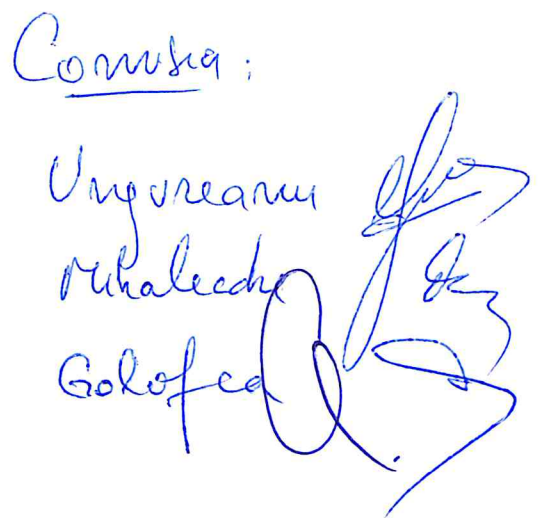 Comisia:
Ungureanu
Mihalache
Golofca